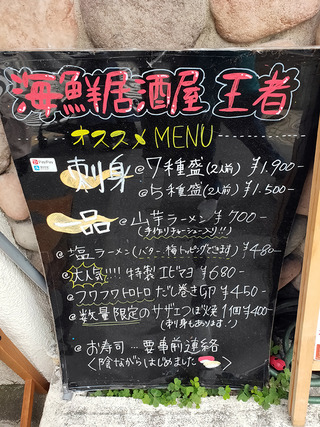 海鮮居酒屋 王者
オススメ MENU
PayPay
刺身 ◎7種盛(2人前) ¥1.900-
◎5種盛(2人前) ¥1.500-
一品 ◎山芋ラーメン ¥700-
(手作りチャーシュー入り!!)
◎塩ラーメン(バター、梅トッピングできます) ¥480-
◎大人気!!!! 特製エビマヨ ¥680-
◎フワフワトロトロ だし巻き卵 ¥450-
◎数量限定のサザエつぼ焼 1個¥400-
(刺し身もあります!)
◎お寿司…要事前連絡
〈陰ながらはじめました 〉